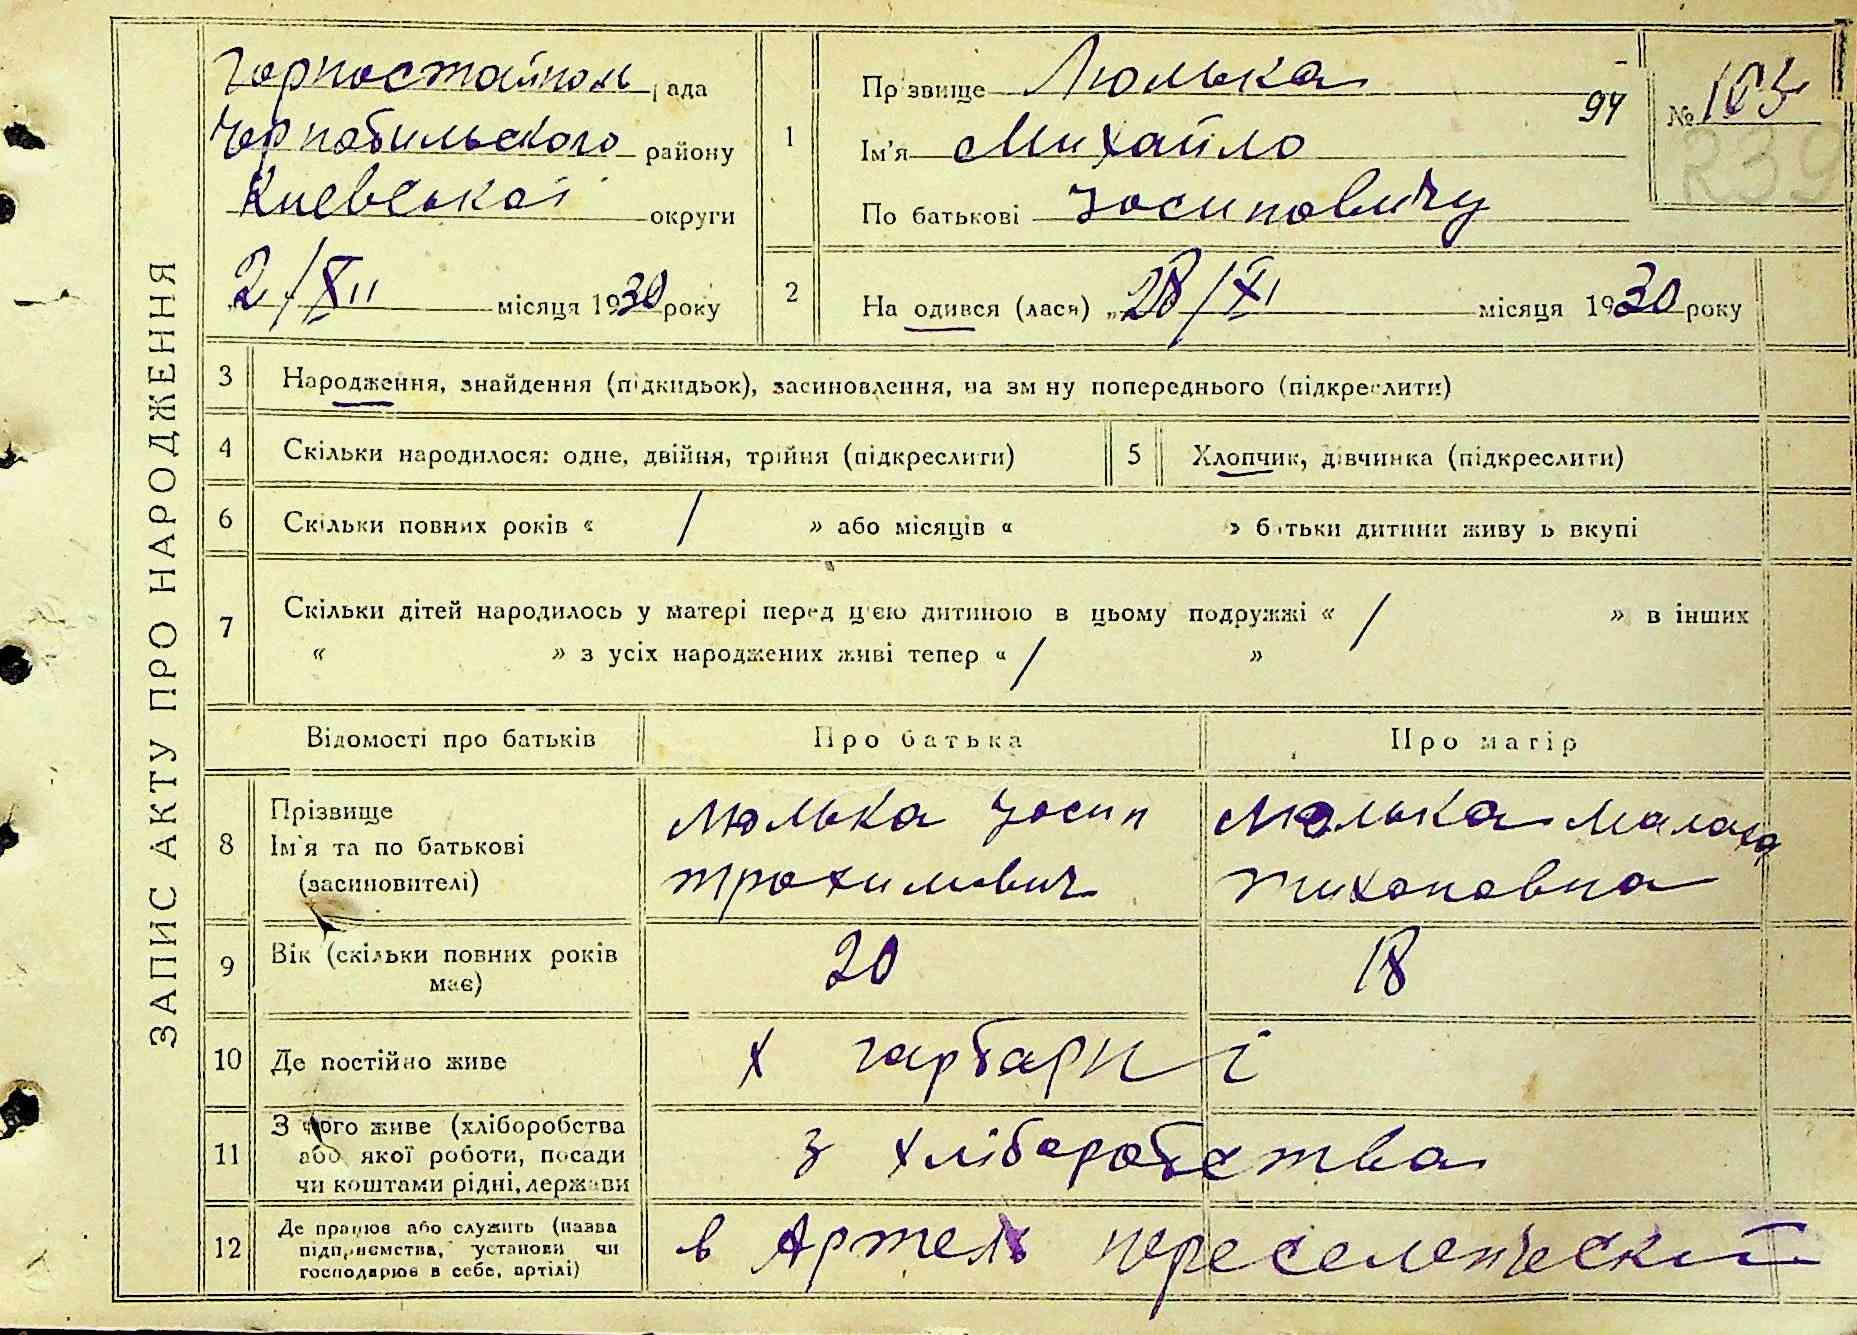 ЗАПИС АКТУ ПРО НАРОДЖЕННЯ
Горностайполь рада
Чорнобильского району
Киевської округи
2/XII місяця 1930 року
1
Прізвище Люлька
94
№ 103
R39
Ім'я Михайло
По батькові Йосиповичу
2
На одився (лася) „28/XI місяця 1930 року
3 Народження, знайдення (підкидьок), засиновлення, на зм ну попереднього (підкреслити)
4 Скільки народилося: одне, двійня, трійня (підкреслити)
5 Хлопчик, дівчинка (підкреслити)
6 Скільки повних років « / » або місяців « » батьки дитини живу ь вкупі
7 Скільки дітей народилось у матері перед цією дитиною в цьому подружжі « / » в інших
« » з усіх народжених живі тепер « / »
Відомості про батьків Про батька Про матір
8 Прізвище
Ім'я та по батькові
(засиновителі)
Люлька Йосип
Трохимович
Люлька Мала
Тихоновна
9 Вік (скільки повних років
має)
20 18
10 Де постійно живе х гарбарні
11 З чого живе (хліборобства
або якої роботи, посади
чи коштами рідні, держави
з хліборобства
12 Де працює або служить (назва
підприємства, установи чи
господарює в себе, артілі)
в Артель переселенческий